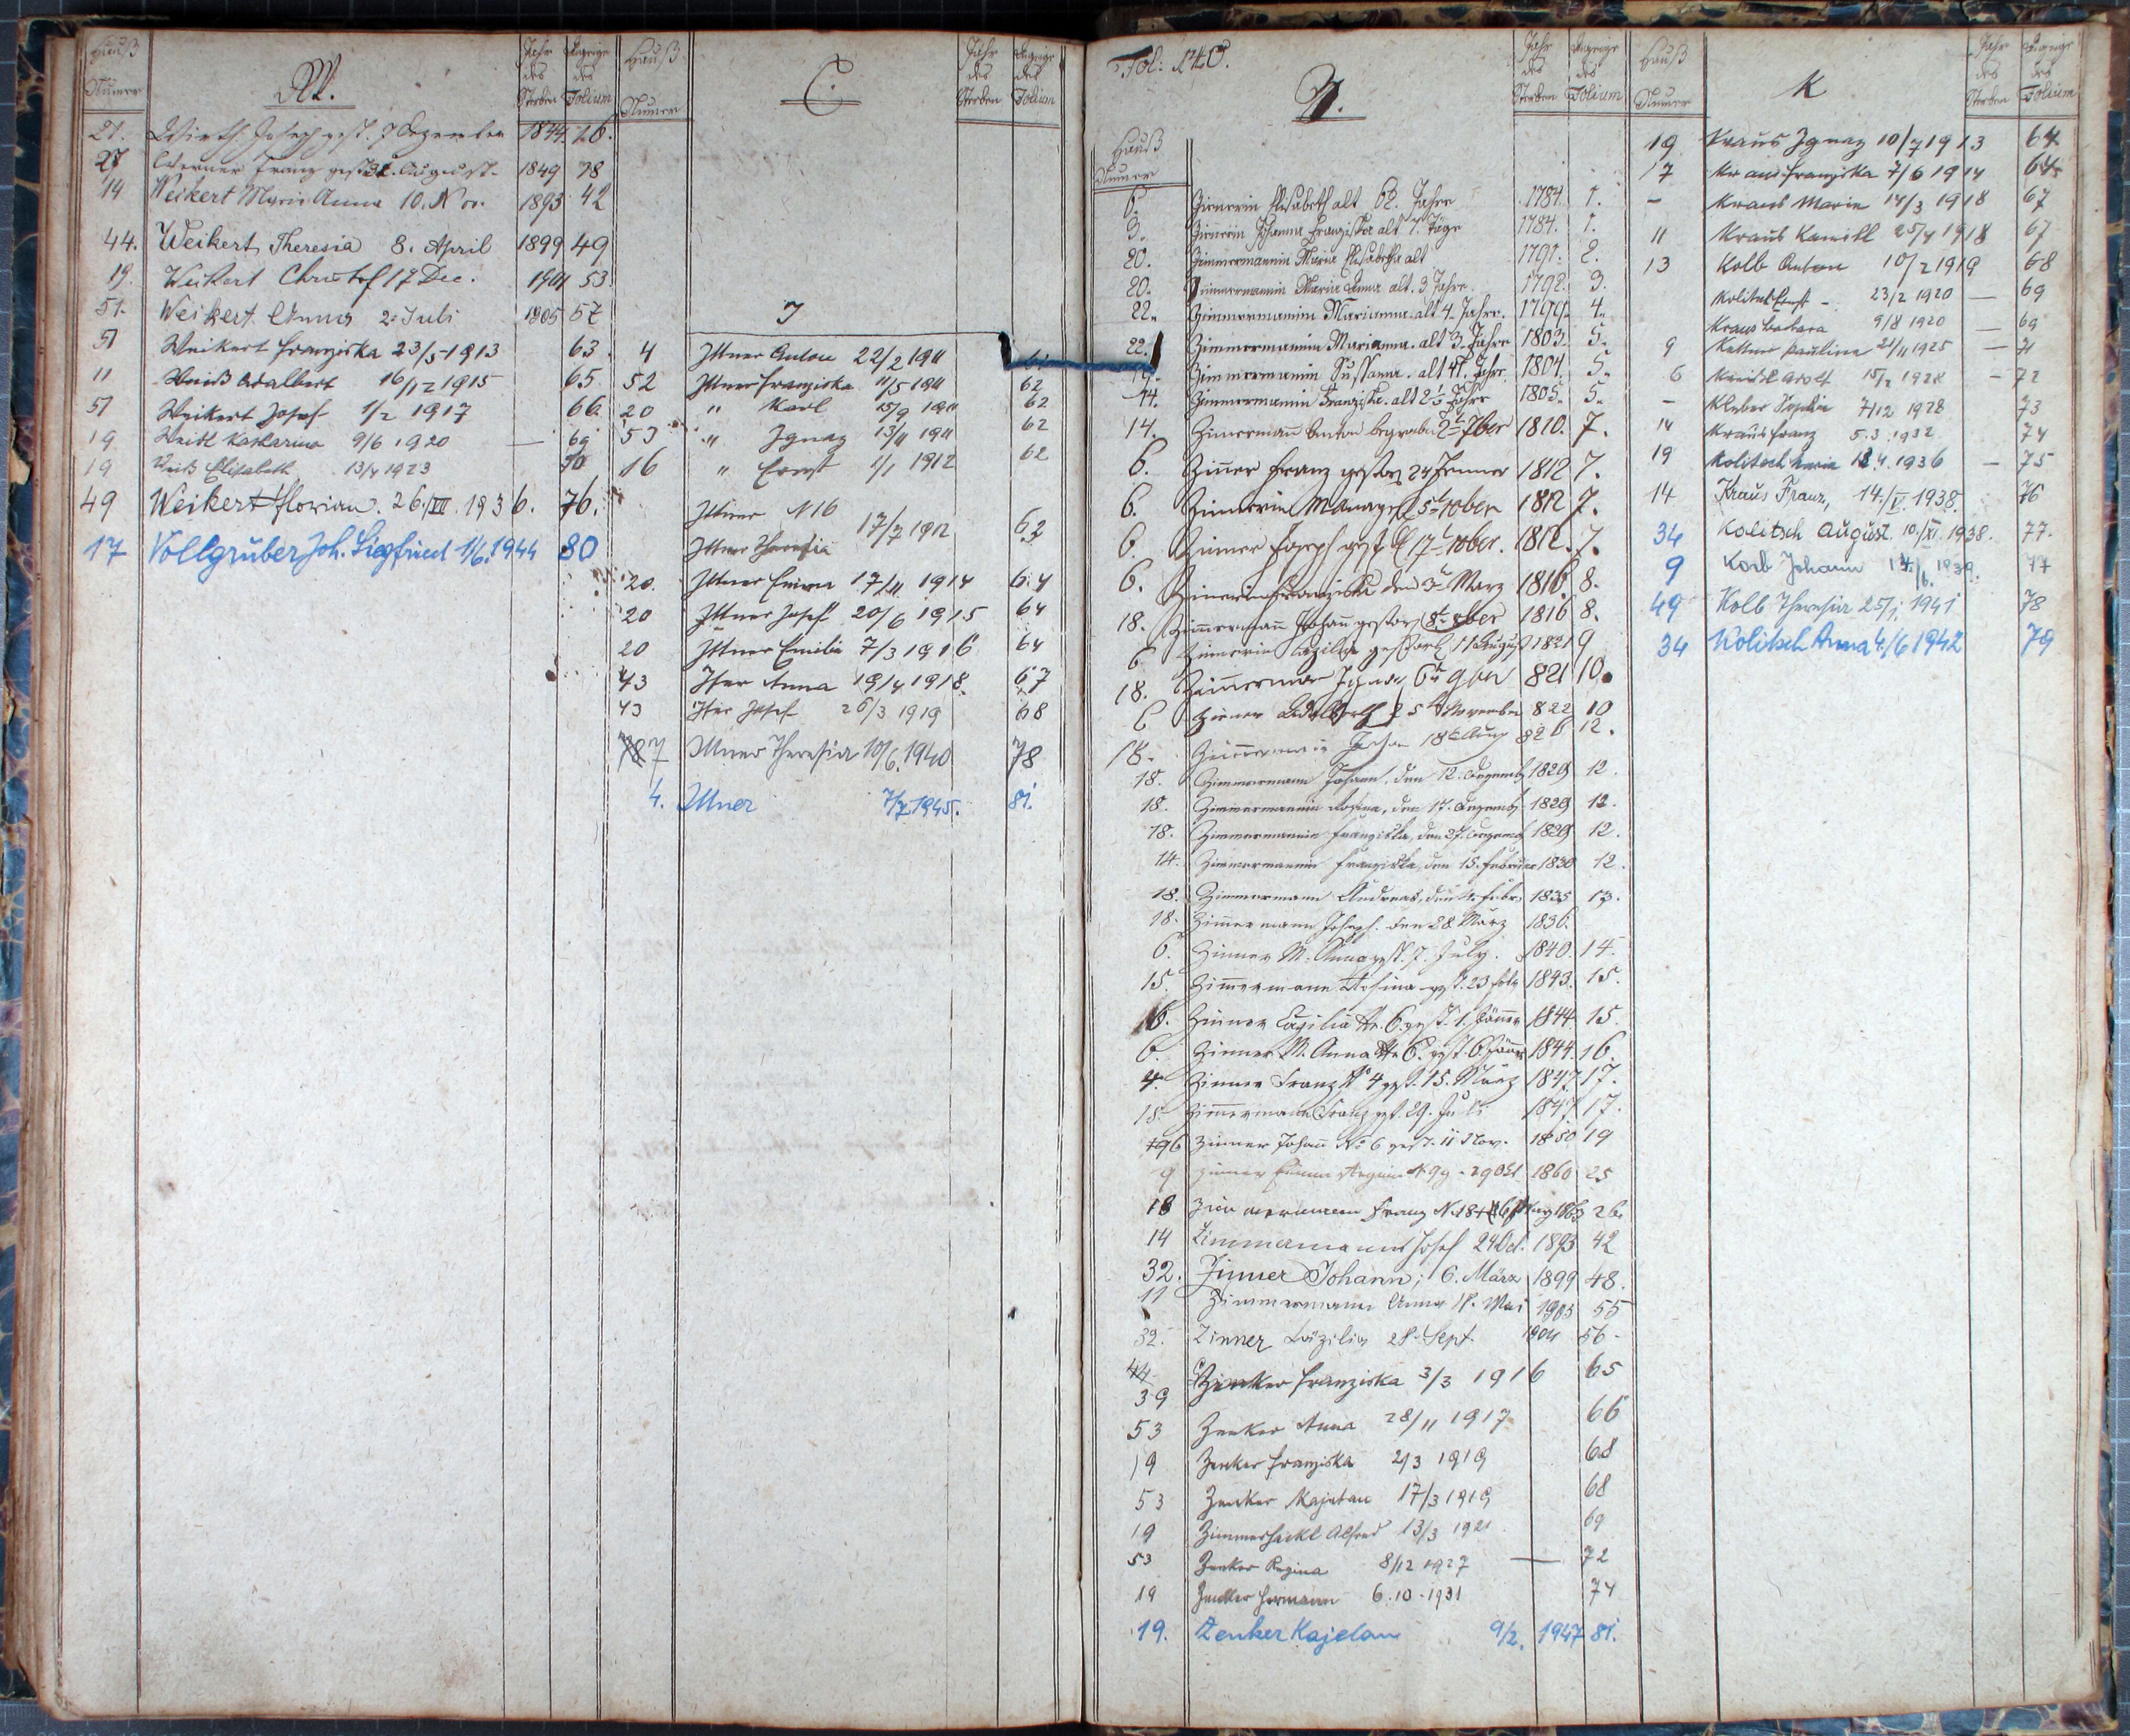 Hauß
Numer
W.
Jahr
des
Sterben
Anzeige
des
Folium
21. Wirth Joseph gest. 7 Dezember 1844. 16.
27 Werner Franz gest. August 1849 18
14 Weikert Maria Anna 10. Nov. 1893 42
44. Weikert Theresia 8. April 1899 49
19. Weikert Christof 17 Dec. 1901 53
51. Weikert Anna 2. Juli 1905 57
51 Weikert Franziska 23/5 1913 63
11 Weiß Adalbert 16/12 1915 65
51 Weikert Josef 1/2 1917 66
19 Weidl Katharina 9/6 1920 — 69
19 Weiß Elisabeth 13/4 1923 70
49 Weikert Florian. 26./VII. 1936. 76.
17 Vollgruber Joh. Siegfried 1/6.1944 80
Hauß
Numer
C.
Jahr
des
Sterben
Anzeige
des
Folium
J
4 Ittner Anton 22/2 1911 61
52 Ittner Franziska 11/5 1911 62
20 " Karl 15/9 1911 62
53 " Ignaz 13/11 1911 62
16 " Ernst 1/1 1912 62
Ittner N16
Ittner Theresia 17/7 1912 63
20. Ittner Emma 17/11 1914 64
20 Ittner Josef 20/6 1915 64
20 Ittner Emilie 7/3 1916 64
43 Iser Anna 19/4 1918. 67
43 Iser Josef 26/3 1919 68
7 Ittner Theresia 10/6. 1940 78
4. Ittner 7/7.1945. 81.
Fol: 140.
Z.
Jahr
des
Sterben
Anzeige
des
Folium
Hauß
Numer
6. Zinerin Elisabeth alt 62. Jahre 1784. 1.
3. Zinerin Johanna Franziska alt 7. Täge 1784. 1.
20. Zimmermannin Maria Elisabetha alt 1791. 2.
20. Zimmermannin Maria Anna alt. 3 Jahre. 1792. 3.
22. Zimmermannin Marianna. alt 4. Jahre. 1799. 4.
22. Zimmermannin Marianna. alt 3. Jahre 1803. 5.
14. Zimmermannin Sussanna. alt 47. Jahr. 1804. 5.
14. Zimmermannin Franziska. alt 2½ Jahre 1805. 5.
14. Zimermann Anton begraben 2t 7ber 1810. 7.
6. Ziner Franz gestor 24 Jenner 1812 7.
6. Zinnerin M Anna gest 5t 10ber 1812 7.
6. Zinner Joseph gest d 17t 10ber. 1812. 7.
6. Zinnerin Franziska den 3t Marz 1816. 8.
18. Zimmermann Johann gestor 8t 8ber 1816 8.
6 Zinnerin Cäzilia gestorb 11 August 1819 9
18. Zimmermann Ignaz 6t 9ber 821 10.
6 Ziener Adalberth 25t November 822 10
18. Zimmermann 18t Aug 826 12.
18. Zimmermann Johann, den 12. Dezemb 1829 12.
18. Zimmermannin Rosina, den 17. Dezemb 1829 12.
18. Zimmermannin Franziska, den 27. Dezemb 1829 12.
14. Zimmermannin Franziska, den 15. Februar 1830 12.
18. Zimmermann Andreas, den 4. Febr. 1835 13.
18. Zimmermann Joseph. den 28 März 1836.
6. Zinner M. Anna gest. 7. July. 1840. 14.
15. Zimmermann Rosina gest. 23 Feb 1843. 15.
6. Zinner Cäzilia Nr. 6. gest. 1. Jänner 1844 15.
6. Zinner M. Anna Nr 6. gest. 6. Jänner 1844. 16.
4. Zinner Franz No 4 gest. 15. März 1847 17.
18 Zimmermann Franz gest. 29. Juli 1847. 17.
6 Zinner Johann No 6 gest. 11 Nov. 1850 19
9 Zinner Regina N 9 29 Okt 1860 25
18 Zimmermann Franz N.18 März 1863 26
14 Zimmermann Josef 24 Oct. 1893 42
32. Zinner Johann; 6. März 1899 48.
11 Zimmermann Anna 17. Mai 1903 55
32. Zinner Cäzilia 28. Sept. 1904 56.
44
39 Zenker Franziska 3/3 1916 65
53 Zenker Anna 28/11 1917 66
19 Zenker Franziska 2/3 1919 68
53 Zenker Kajetan 17/3 1919 68
19 Zimmerhackl Alfred 13/3 1921 69
53 Zenker Regina 8/12 1927 — 72
19 Zenker Hermann 6.10.1931 74
19. Zenker Kajetan 9/2. 1947 81.
Hauß
Numer
K
Jahr
des
Sterben
Anzeige
des
Folium
19 Kraus Ignaz 10/7 1913 64
17 Kraus Franziska 7/6 1914 64
- Kraus Maria 14/3 1918 67
11 Kraus Kamill 25/4 1918 67
13 Kolb Anton 10/2 1919 68
Kolitsch Ernst - 23/2 1920 — 69
Kraus Barbara 9/8 1920 — 69
9 Kattner Paulina 21/11 1925 — 71
6 Adolf 15/2 1928 - 72
- Kleber Sophie 7/12 1928 73
14 Kraus Franz 5.3.1932 74
19 Kolitsch Maria 12.4.1936 — 75
14 Kraus Franz, 14./V. 1938. 76
34 Kolitsch August. 10./XI. 1938. 77.
9 Korb Johann 14./6. 1939. 77
49 Kolb Theresia 25/1. 1941 78
34 Kolitsch Anna 4./6 1942 79